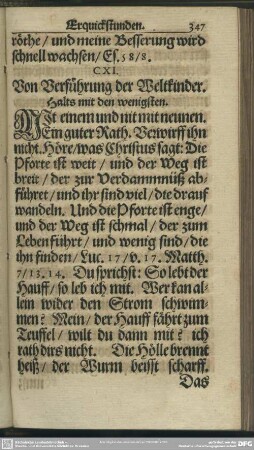 Erquickstunden. 347
röthe / und meine Besserung wird
schnell wachsen / Es. 58 / 8.
CXI.
Von Verführung der Weltkinder.
Halts mit den wenigsten.
MIt einem und nit mit neunen.
Ein guter Rath. Verwirff ihn
nicht. Höre / was Christus sagt: Die
Pforte ist weit / und der Weg ist
breit / der zur Verdammnüß ab-
führet / und ihr sind viel / die drauf
wandeln. Und die Pforte ist enge /
und der Weg ist schmal / der zum
Leben führt / und wenig sind / die
ihn finden / Luc. 17 / v. 17. Matth.
7 / 13. 14. Du sprichst: So lebt der
Hauff / so leb ich mit. Wer kan al-
lein wider den Strom schwim-
men? Mein / der Hauff fährt zum
Teuffel / wilt du dann mit? ich
rath dirs nicht. Die Hölle brennt
heiß / der Wurm beisst scharff.
Das